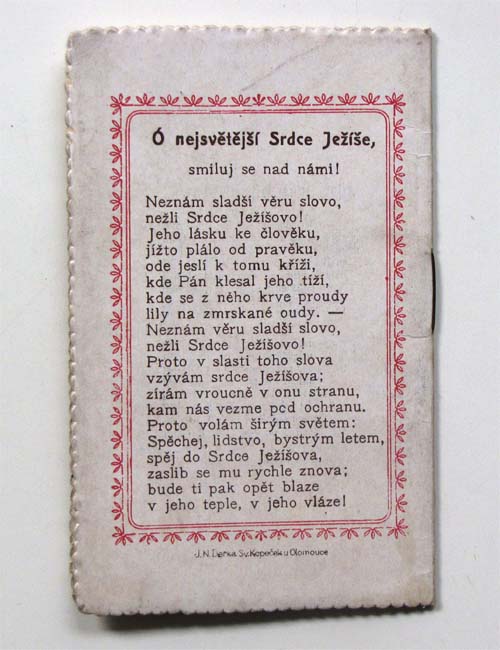 Ó nejsvětější Srdce Ježíše,
smiluj se nad námi!
Neznám sladší věru slovo,
nežli Srdce Ježíšovo!
Jeho lásku ke člověku,
jížto plálo od pravěku,
ode jeslí k tomu kříži,
kde Pán klesal jeho tíží,
kde se z něho krve proudy
lily na zmrskané oudy. —
Neznám věru sladší slovo,
nežli Srdce Ježíšovo!
Proto v slasti toho slova
vzývám srdce Ježíšova;
zírám vroucně v onu stranu,
kam nás vezme pcd ochranu.
Proto volám širým světem:
Spěchej, lidstvo, bystrým letem,
spěj do Srdce Ježíšova,
zaslib se mu rychle znova;
bude ti pak opět blaze
v jeho teple, v jeho vláze!
J. N. Sv. Kopeček u Olomouce